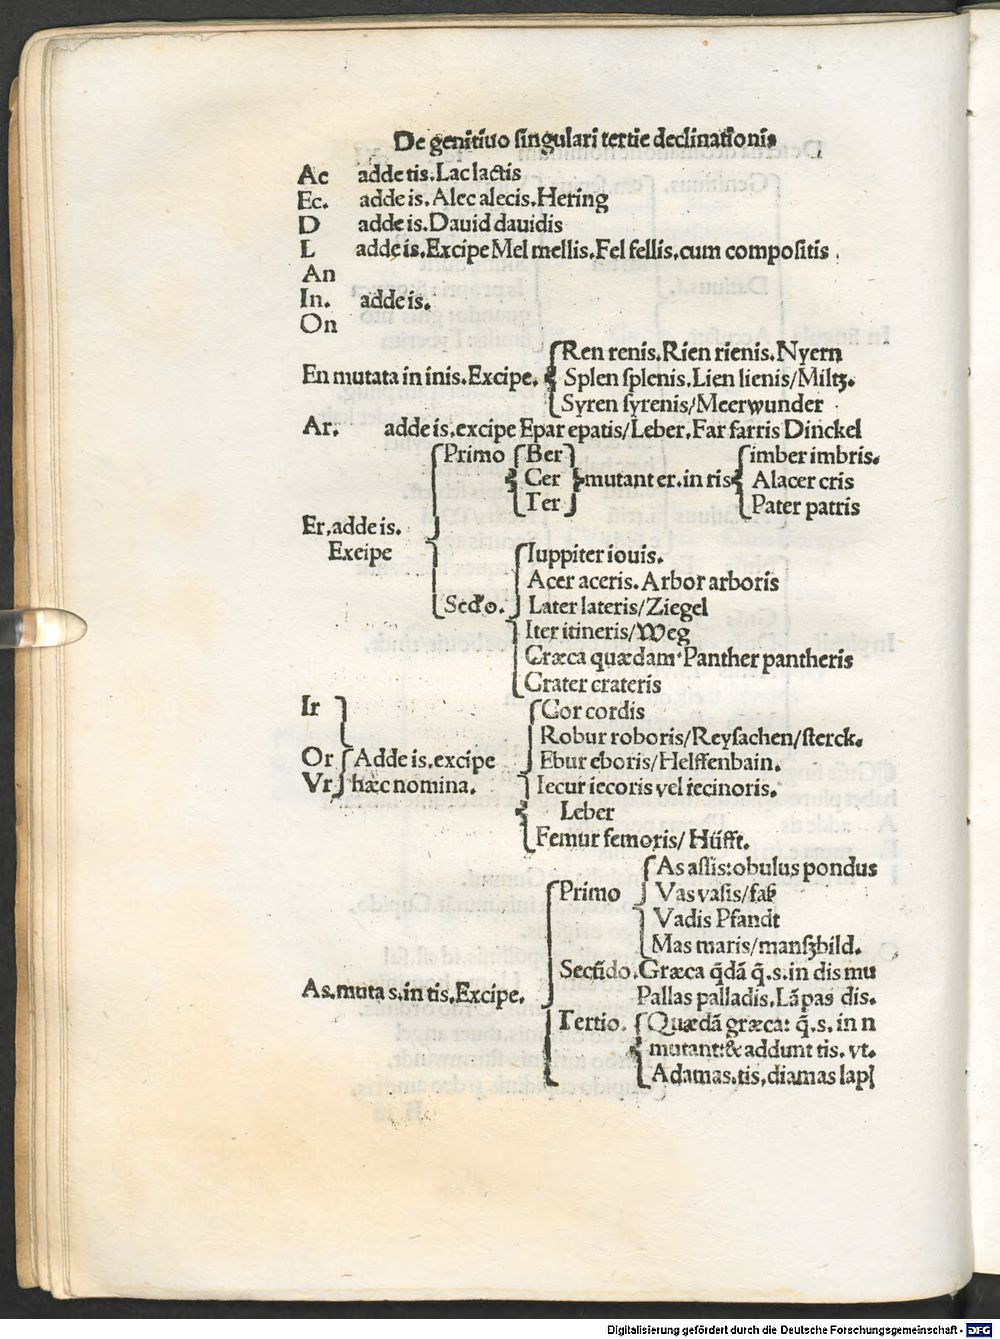 De genitiuo singulari tertie declinationis
Ac adde tis. Lac lactis
Ec. adde is. Alec alecis. Hering
D adde is. Dauid dauidis
L adde is. Excipe Mel mellis. Fel fellis. cum compositis .
An
In. adde is.
On
Ren renis. Rien rienis. Nyern
En mutata in inis. Excipe. Splen splenis. Lien lienis/Miltz.
Syren syrenis/Meerwunder
Ar. adde is. excipe Epar epatis/Leber. Far farris Dinckel
Primo Ber imber imbris.
Cer mutant er. in ris Alacer cris
Ter Pater patris
Er, adde is.
Excipe Iuppiter iouis.
Acer aceris. Arbor arboris
Later lateris/Ziegel
Iter itineris/Weg
Græca quædam. Panther pantheris
Crater crateris
Ir Cor cordis
Robur roboris/Reysachen/sterck.
Or Adde is. excipe Ebur eboris/Helffenbain.
Vr hæc nomina. Iecur iecoris vel iecinoris.
Leber
Femur femoris/Hüfft.
As assis: obulus pondus
Primo Vas vasis/faß
Vadis Pfandt
Mas maris/manßbild.
Secũdo. Græca q̃dã q̃. s. in dis mu
As. muta s. in tis. Excipe. Pallas palladis. Lãpas dis.
Tertio. Quædã græca: q̃. s. in n
mutant: & addunt tis. vt.
Adamas. tis, diamas lapſ
Digitalisierung gefördert durch die Deutsche Forschungsgemeinschaft - DFG